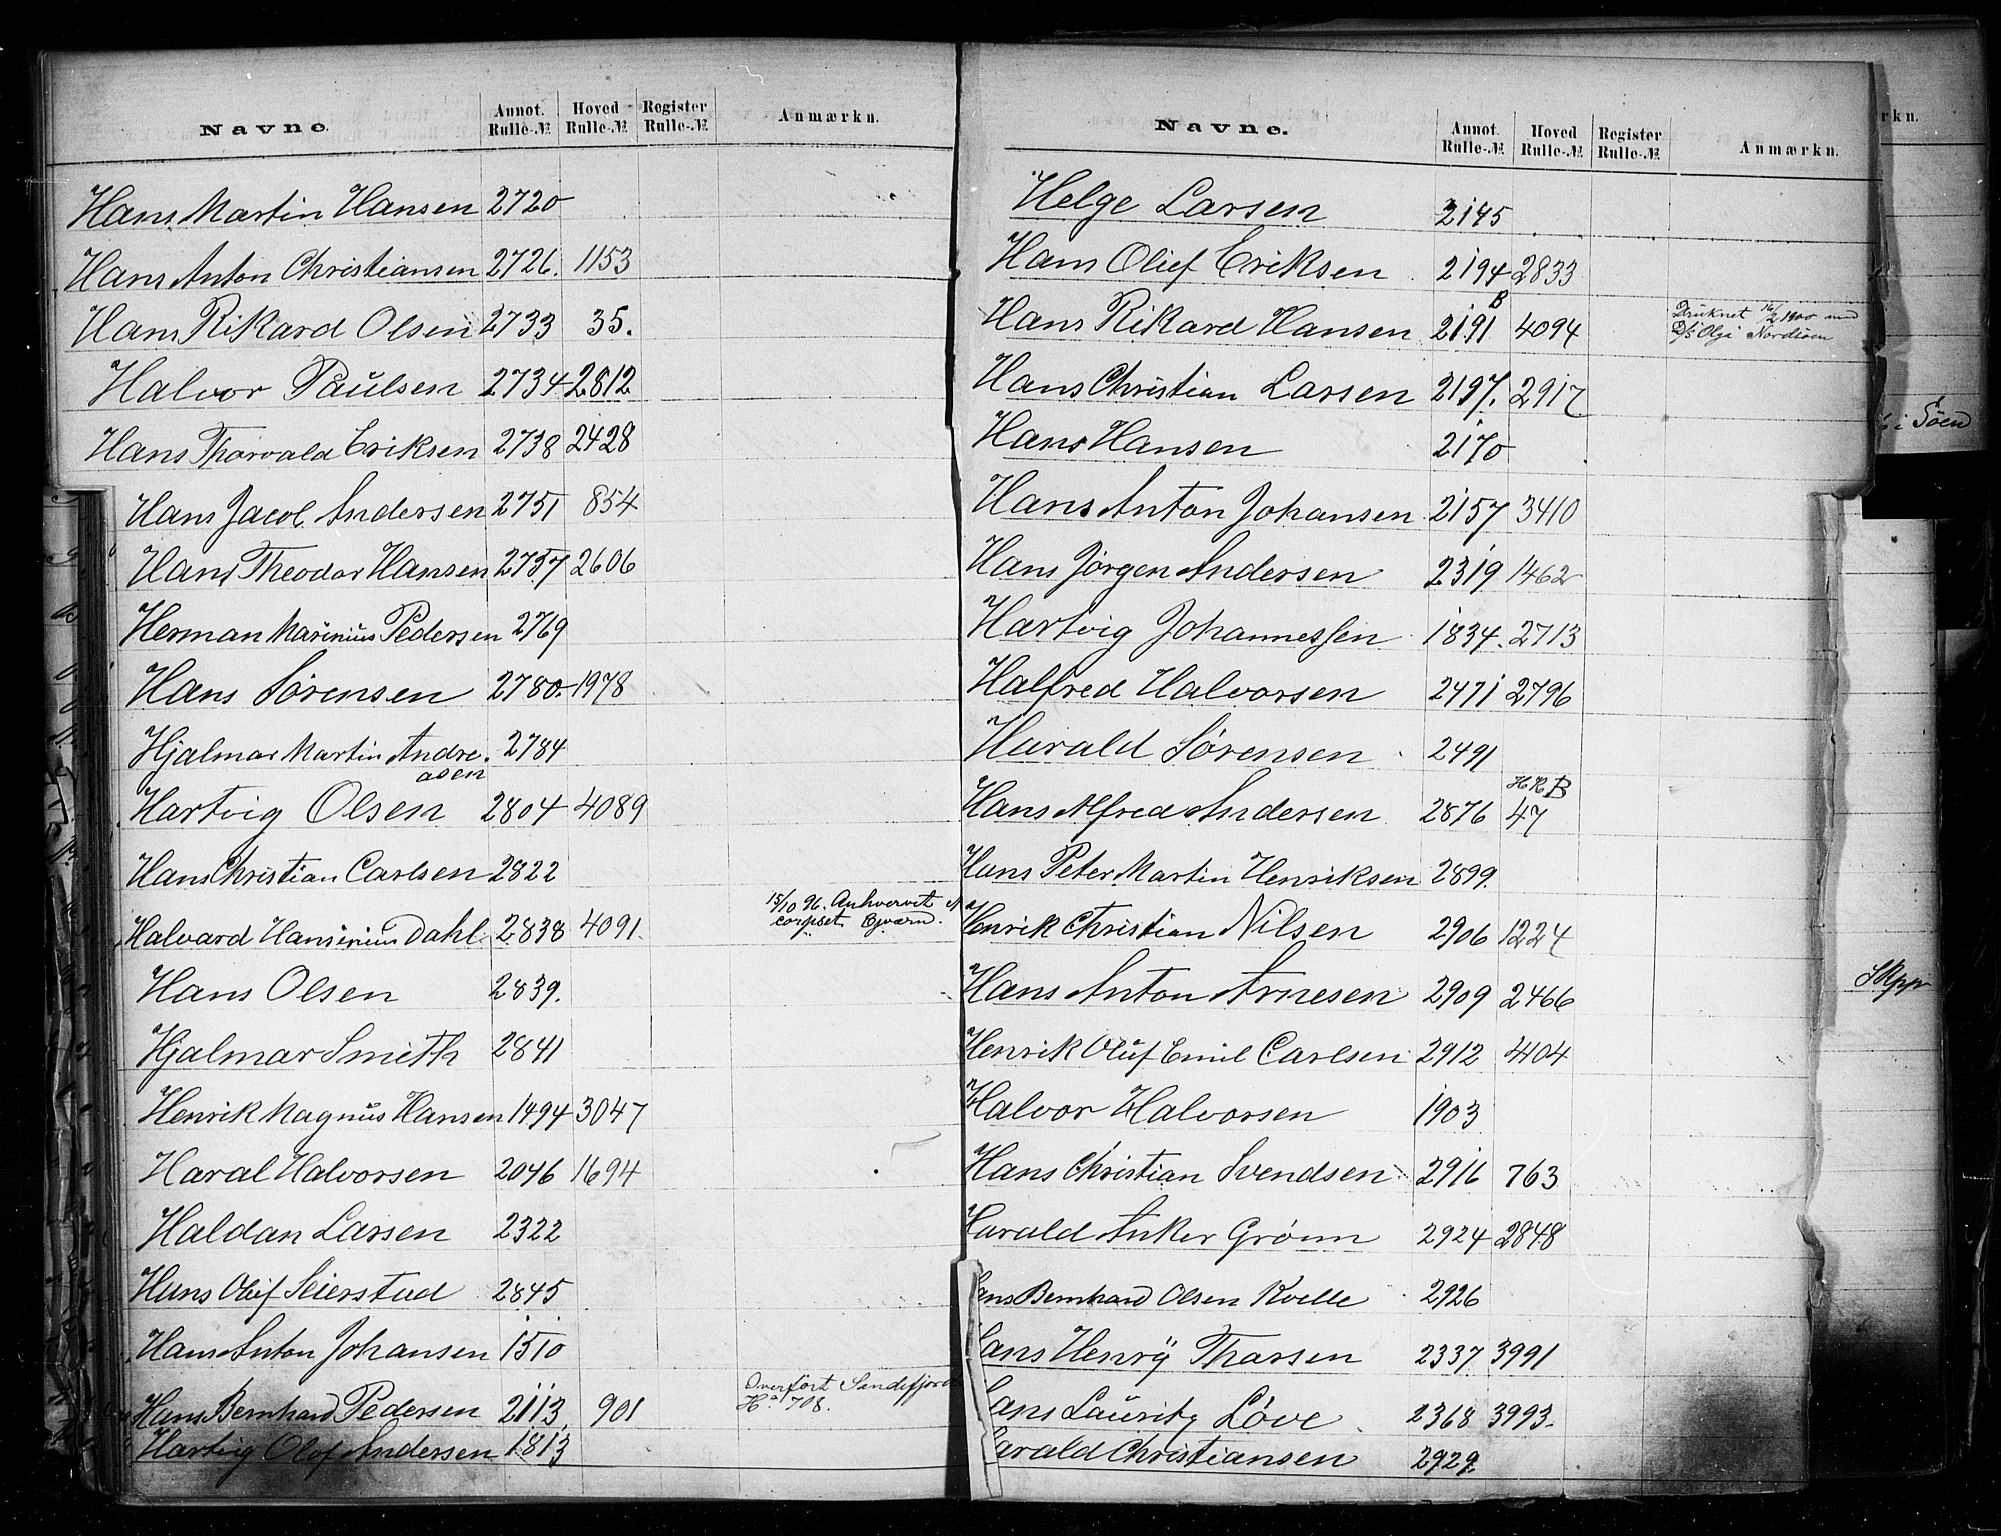 Navne. Annot. Rulle-№ Hoved Rulle-№ Register Rulle-№ Anmærkn.
Hans Martin Hansen 2720
Hans Anton Christiansen 2726. 1153
Hans Rikard Olsen 2733 35.
Halvor Paulsen 2734 2812
Hans Thorvald Eriksen 2738 2428
Hans Jacob Andersen 2751 854
Hans Theodor Hansen 2757 2606
Herman Marinius Pedersen 2769
Hans Sørensen 2780. 1978
Hjalmar Martin Andre. 2784
asen
Hartvig Olsen 2804 4089
Hans Christian Carlsen 2822
15/10 96.
Halvard Hansinius Dahl 2838 4091 corpset
Hans Olsen 2839.
Hjalmar Smith 2841
Henrik Magnus Hansen 1494 3047
Haral Halvorsen 2046 1694
Haldan Larsen 2322
Hans Oluf Seierstad 2845
Hans Anton Johansen 1510
Overført Sandefjord
Hans Bernhard Pedersen 2113 901 708.
Hartvig Olof Andersen 1813
Navne. Annot. Rulle-№ Hoved Rulle-№ Register Rulle-№ Anmærkn.
Helge Larsen 2145
Hans Olief Eriksen 2194 2833
B Druknet 16/2 1900 med
Hans Rikard Hansen 2191 4094 D/s Olga Nordsøen
Hans Christian Larsen 2197. 2917
Hans Hansen 2170
Hans Anton Johansen 2157 3410
Hans Jørgen Andersen 2319 1462
Hartvig Johannessen 1834. 2713
Halfred Halvorsen 2471 2796
Harald Sørensen 2491
H R B
Hans Alfred Andersen 2876 47
Hans Peter Martin Henriksen 2899.
Henrik Christian Nilsen 2906 1224
Hans Anton Arnesen 2909 2466
Henrik Oluf Emil Carlsen 2912 4104
Halvor Halvorsen 1903
Hans Christian Svendsen 2916 763
Harald Anker Grönn 2924 2848
ans Bernhard Olsen Kvelle 2926
ans Henry Thorsen 2337. 3991
ans Lauritz Løve 2368 3993.
arald Christiansen 2929.
rkn.
i Söen
Skpp